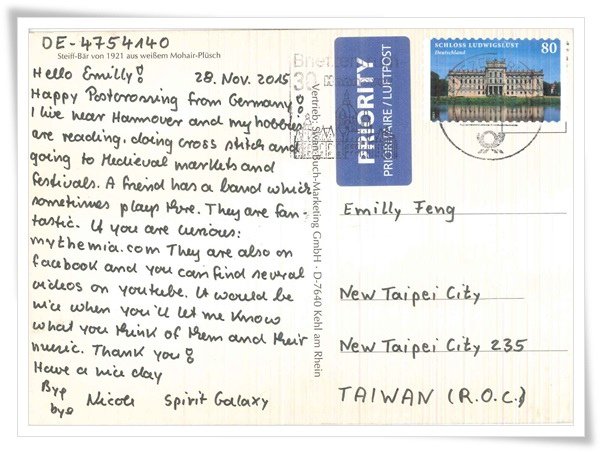 DE-4754140
Steiff-Bär von 1921 aus weißem Mohair-Plüsch
Hello Emilly!
28. Nov. 2015
Happy Postcrossing from Germany!
I live near Hannover and my hobbies
are reading, doing cross stitch and
going to Medieval markets and
festivals. A friend has a band which
sometimes plays there. They are fan-
tastic. If you are curious:
mythemia.com They are also on
facebook and you can find several
videos on youtube. It would be
nice when you'll let me know
what you think of them and their
music. Thank you!
Have a nice day
Bye
bye
Nicole Spirit Galaxy
Vertrieb: Silvan Buch-Marketing GmbH · D-7640 Kehl am Rhein
PRIORITY
PRIORITAIRE / LUFTPOST
SCHLOSS LUDWIGSLUST
Deutschland
80
Emilly Feng
New Taipei City
New Taipei City 235
TAIWAN (R.O.C.)